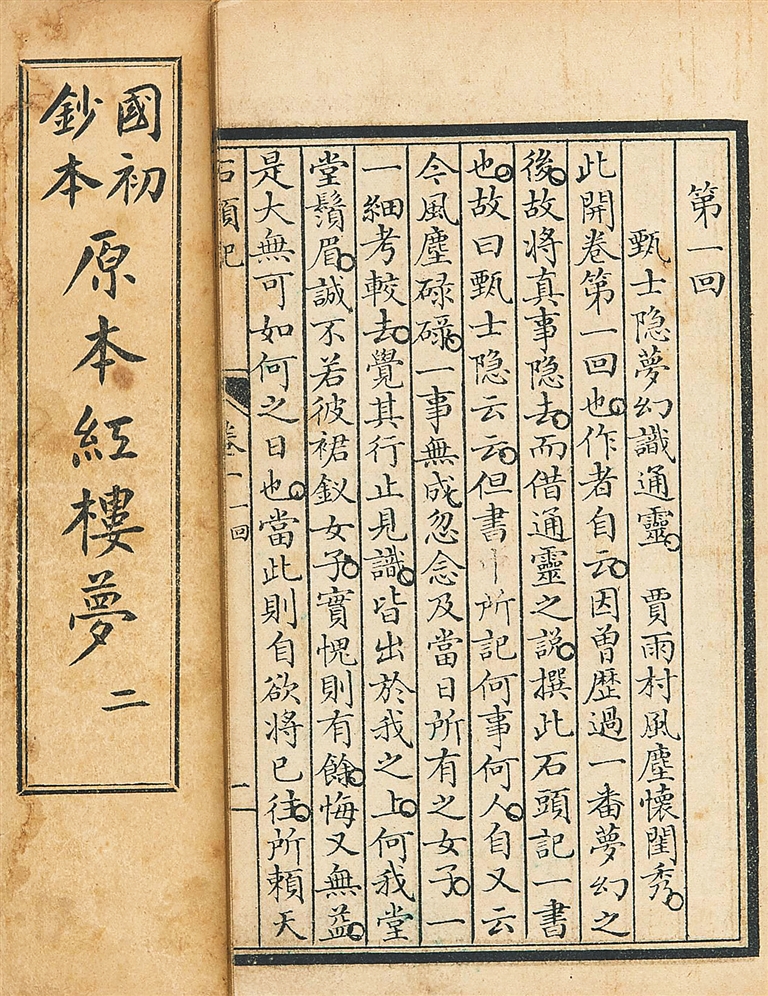 國初
鈔本
原本紅樓夢 二
第一回
甄士隐夢幻識通靈。 賈雨村風塵懷閨秀。
此開卷第一回也。作者自云。因曾歷過一番夢幻之
後。故將真事隐去。而借通靈之説。撰此石頭記一書
也。故曰甄士隐云云。但書中所記何事何人。自又云
今風塵碌碌。一事無成忽念及當日所有之女子。一
一細考較去。覺其行止見識。皆出於我之上。何我堂
堂鬚眉。誠不若彼裙釵女子。實愧則有餘。悔又無益。
是大無可如何之日也。當此則自欲將已往。所賴天
石頭記 卷一 一回 二